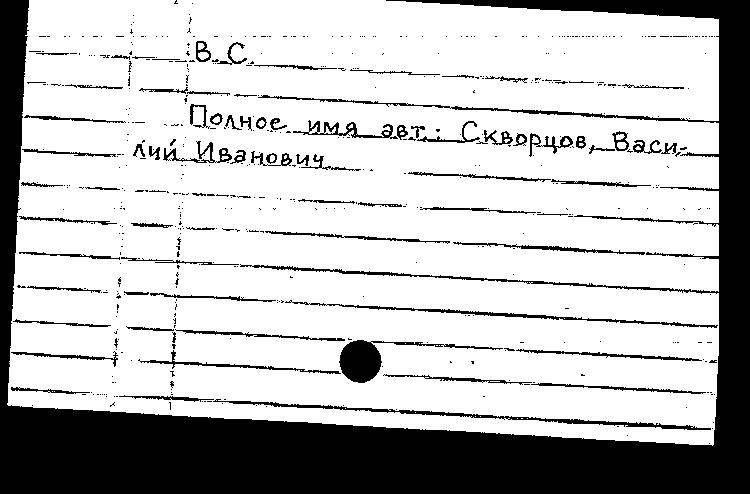 В. С.
Полное имя авт.: Скворцов, Васи-
лий Иванович